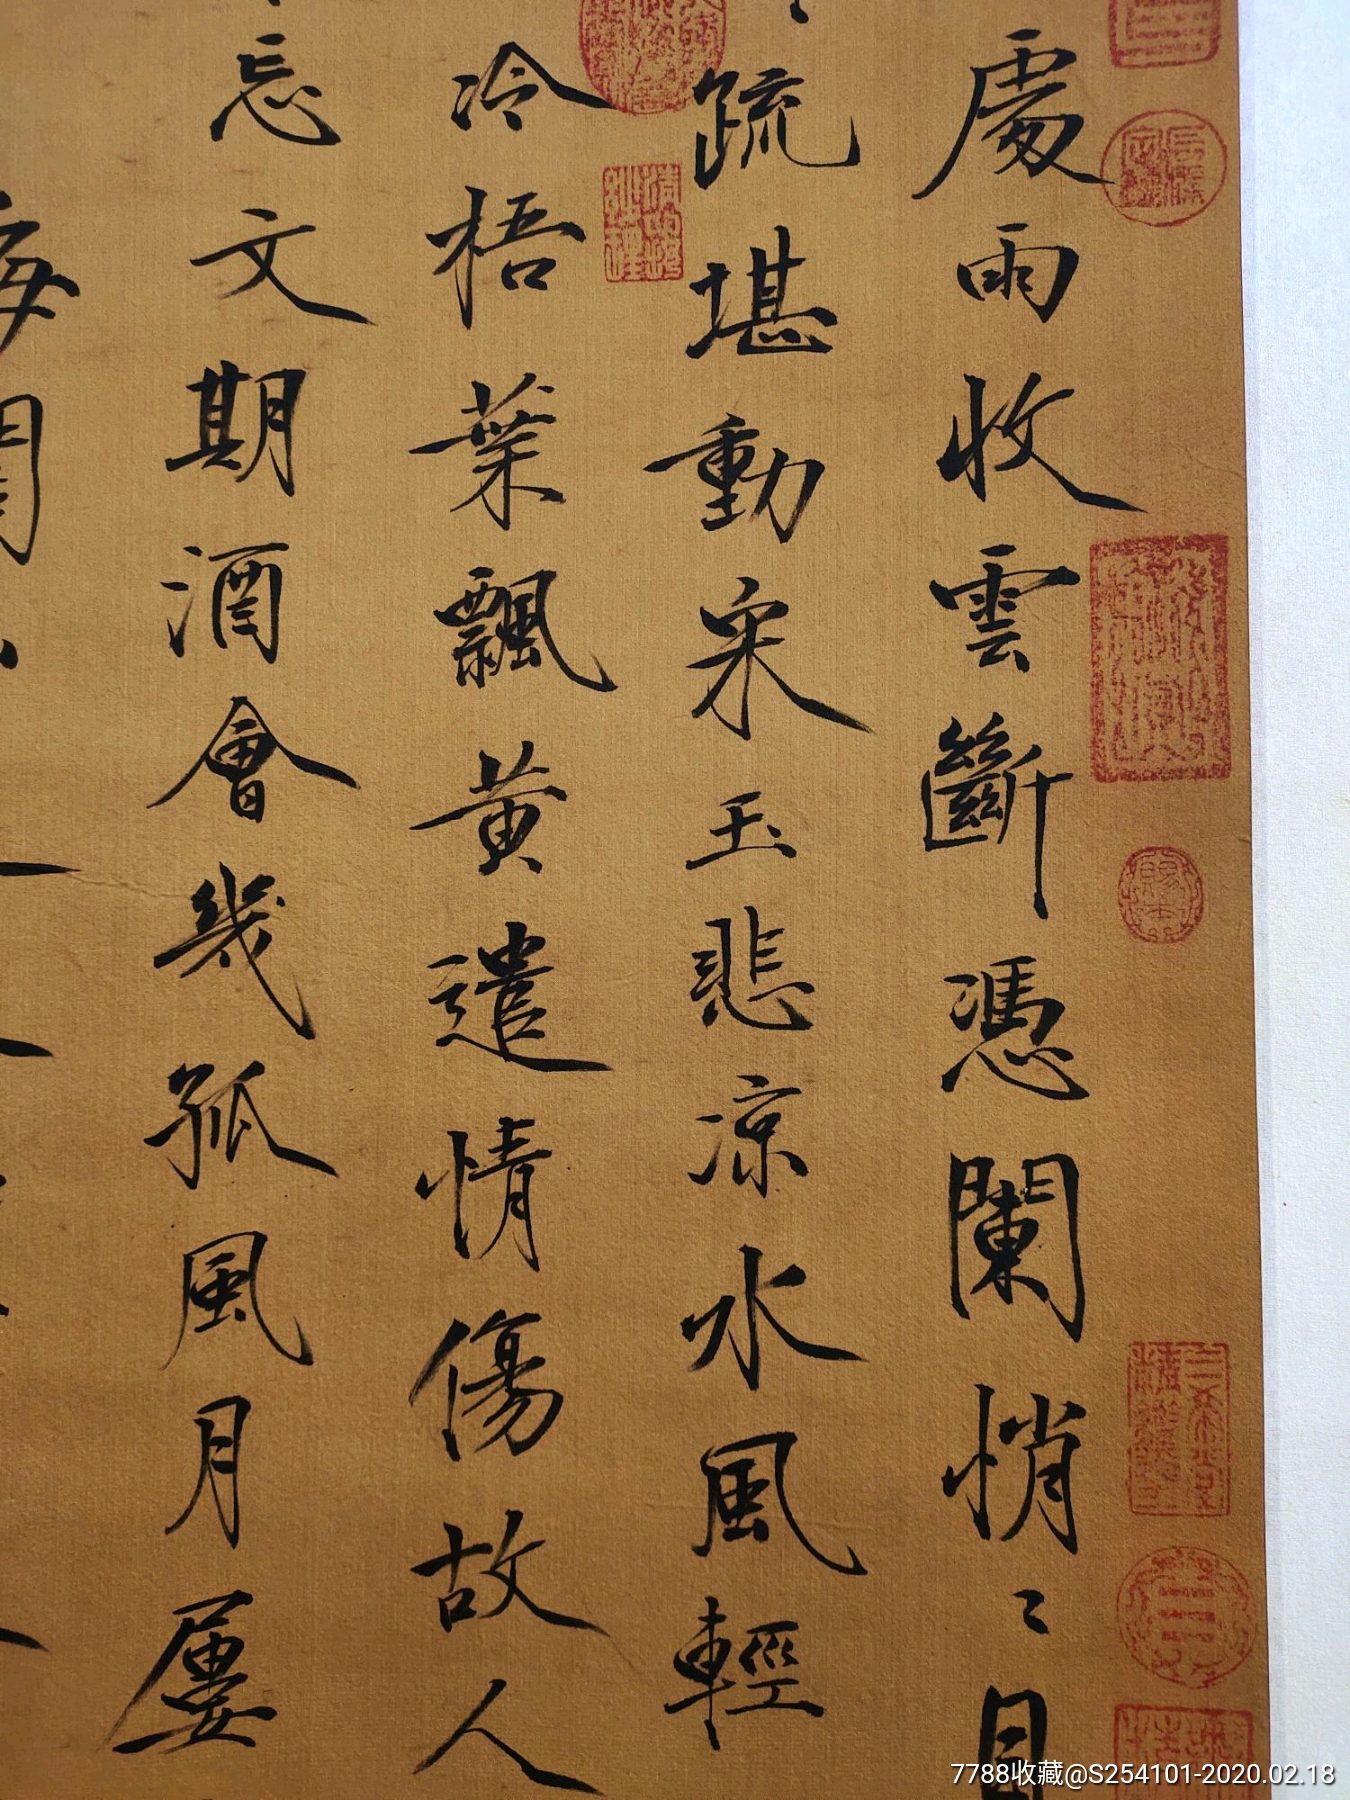 處雨收雲斷憑闌悄〻目
疏堪動宋玉悲涼水風輕
冷梧葉飄黃遣情傷故人
忘文期酒會幾孤風月屢
海闊
7788收藏@S254101-2020.02.18